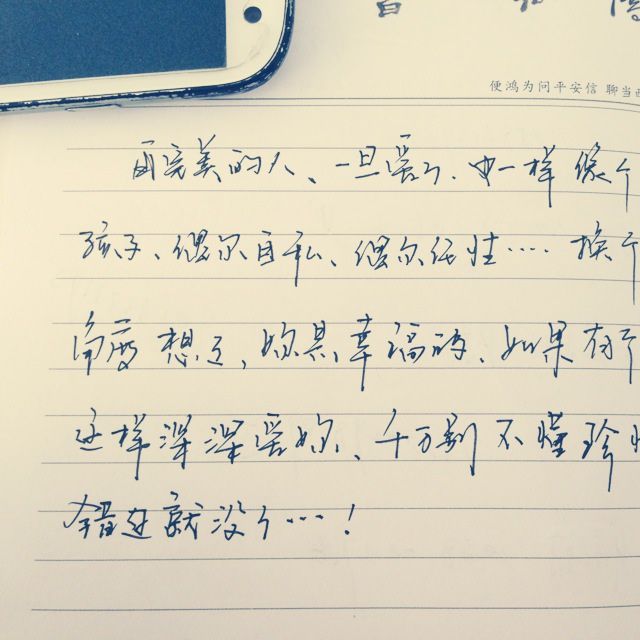 便鸿为问平安信 聊当
再完美的人、一旦爱了、也一样像个
孩子、偶尔自私、偶尔任性…… 换个
角度想之，妳是幸福的、如果有个
这样深深爱妳、千万别不懂珍惜
错过就没了……！